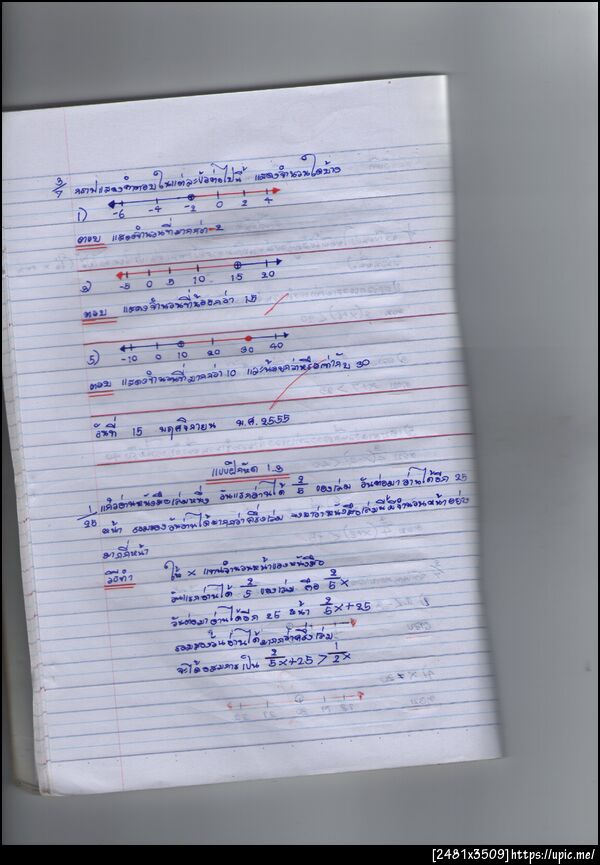 3/7 กราฟแสดงคำตอบในแต่ละข้อต่อไปนี้ แสดงจำนวนใดบ้าง
1) -6 -4 -2 0 2 4
ตอบ แสดงจำนวนที่มากกว่า -2
3) -5 0 5 10 15 20
ตอบ แสดงจำนวนที่น้อยกว่า 15
5) -10 0 10 20 30 40
ตอบ แสดงจำนวนที่มากกว่า 10 และน้อยกว่าหรือเท่ากับ 30
วันที่ 15 พฤศจิกายน พ.ศ.2555
แบบฝึกหัด 1.3
1/25 แก้วอ่านหนังสือเล่มหนึ่ง วันแรกอ่านได้ 2/5 ของเล่ม วันต่อมาอ่านได้อีก 25
หน้า รวมสองวันอ่านได้มากกว่าครึ่งเล่ม จงหาว่าหนังสือเล่มนี้มีจำนวนหน้าอย่าง
มากกี่หน้า
วิธีทำ ให้ x แทนจำนวนหน้าของหนังสือ
วันแรกอ่านได้ 2/5 ของเล่ม คือ 2/5x
วันต่อมาอ่านได้อีก 25 หน้า 2/5x+25
รวมสองวันอ่านได้มากกว่าครึ่งเล่ม
จะได้อสมการเป็น 2/5x+25 > 1/2x
[2481x3509]https://upic.me/